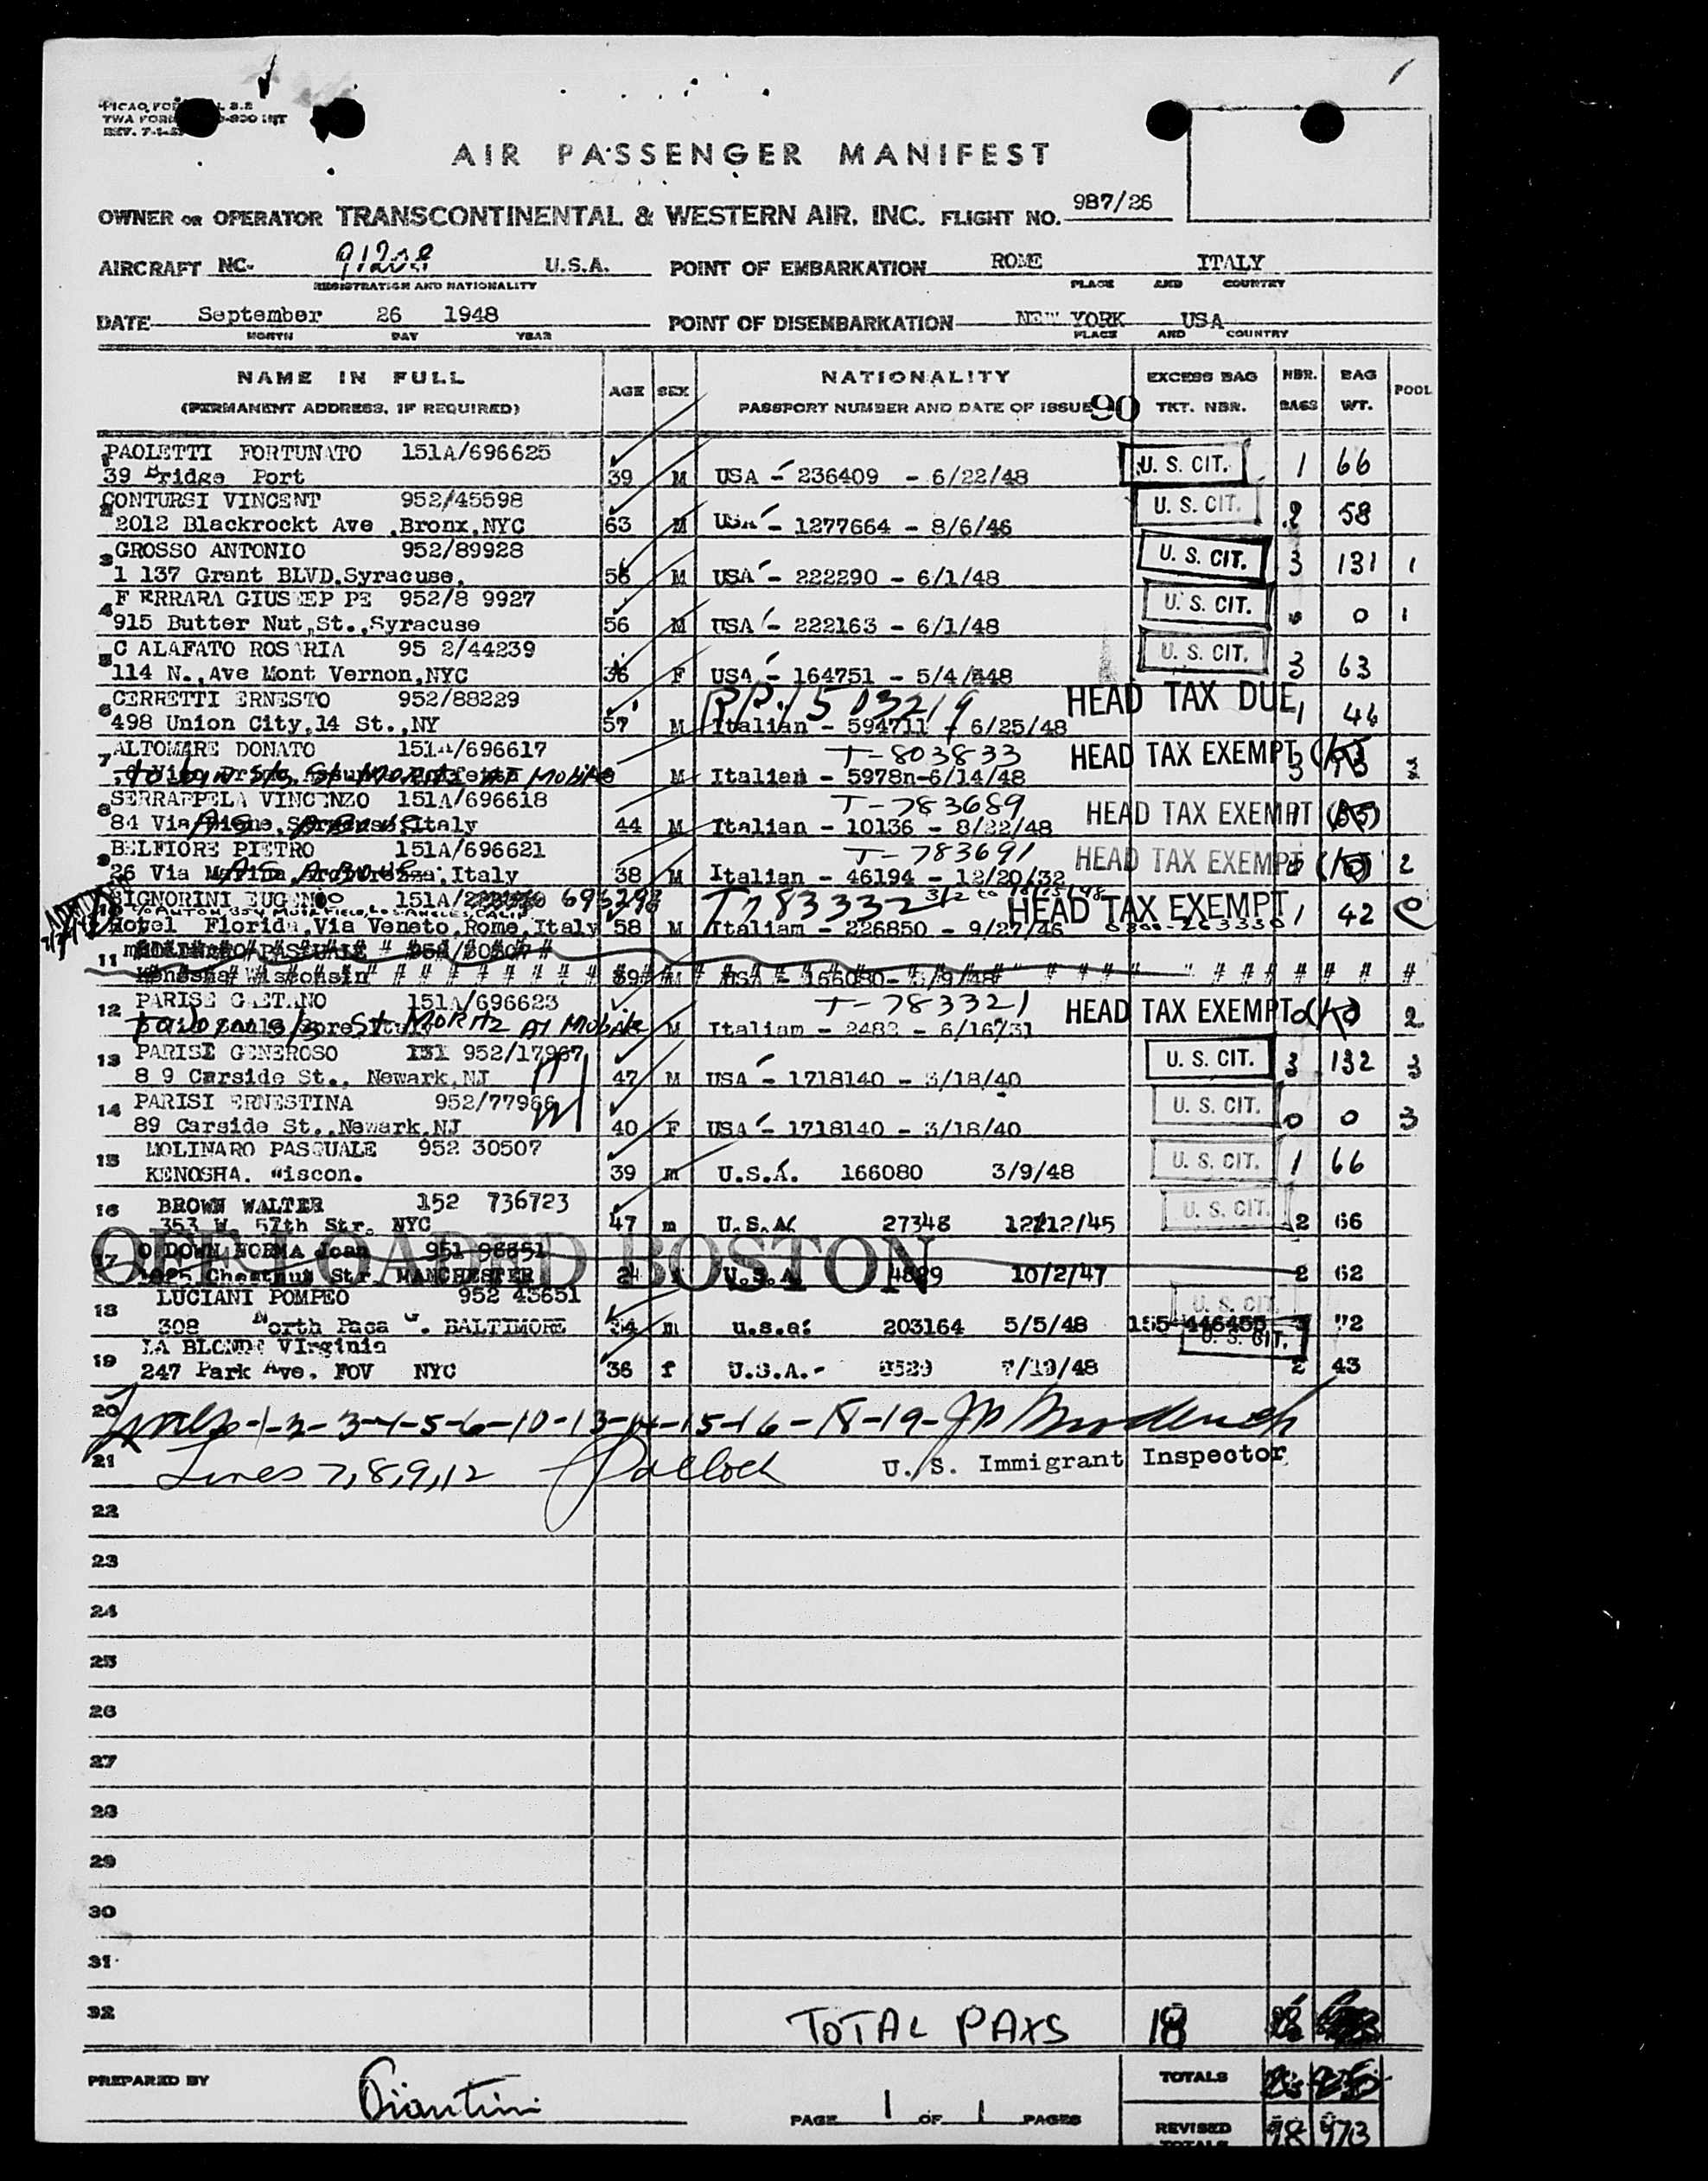 1
ICAO FOR
TWA FORM
REV. 7-1-
AIR PASSENGER MANIFEST
OWNER OR OPERATOR TRANSCONTINENTAL & WESTERN AIR, INC. FLIGHT NO. 987/26
AIRCRAFT NC- 91208 U.S.A. POINT OF EMBARKATION ROME ITALY
REGISTRATION AND NATIONALITY PLACE AND COUNTRY
DATE September 26 1948 POINT OF DISEMBARKATION NEW YORK USA
MONTH DAY YEAR PLACE AND COUNTRY
NAME IN FULL AGE SEX NATIONALITY EXCESS BAG NBR. BAG POOL
(PERMANENT ADDRESS, IF REQUIRED) PASSPORT NUMBER AND DATE OF ISSUE 90 TKT. NBR. BAGS WT.
PAOLETTI FORTUNATO 151A/696625 U. S. CIT. 1 66
39 Bridge Port 39 M USA - 236409 - 6/22/48
CONTURSI VINCENT 952/45598 U. S. CIT. 2 58
2012 Blackrockt Ave .Bronx.NYC 63 M USA - 1277664 - 8/6/46
3 GROSSO ANTONIO 952/89928 U. S. CIT. 3 131 1
1 137 Grant BLVD.Syracuse. 56 M USA - 222290 - 6/1/48
4 F ERRARA GIUSEEP PE 952/8 9927 U. S. CIT. 0 1
915 Butter Nut,St.,Syracuse 56 M USA - 222163 - 6/1/48
5 C ALAFATO ROSARIA 95 2/44239 U. S. CIT. 3 63
114 N.,Ave Mont Vernon,NYC 36 F USA - 164751 - 5/4/48
6 CERRETTI ERNESTO 952/88229 HEAD TAX DUE 1 44
498 Union City,14 St.,NY 57 M Italian - 594711 - 6/25/48
7 ALTOMARE DONATO 151A/696617 T-803833 HEAD TAX EXEMPT 3
M Italian - 5978n-6/14/48
8 SERRAPPELA VINCENZO 151A/696618 T-783689 HEAD TAX EXEMPT
84 Via Italy 44 M Italian - 10136 - 8/22/48
9 BELFIORE PIETRO 151A/696621 T-783691 HEAD TAX EXEMPT 2
26 Via Italy 38 M Italian - 46194 - 12/20/32
SIGNORINI EUGENIO 151A/ 693298 T783332 HEAD TAX EXEMPT 1 42
Hotel Florida,Via Veneto,Rome,Italy 58 M Italiam - 226850 - 9/27/46
11 MOLINARO PASQUALE 952/30507
Kenosha Wisconsin 39 M USA - 166080 - 3/9/48
12 PARISE GAETANO 151A/696623 T-783321 HEAD TAX EXEMPT 2
M Italiam - 2482 - 6/16/31
13 PARISI GENEROSO 151 952/17967 U. S. CIT. 3 132 3
8 9 Carside St., Newark,NJ 47 M USA - 1718140 - 3/18/40
14 PARISI ERNESTINA 952/77966 U. S. CIT. 0 0 3
89 Carside St.,Newark,NJ 40 F USA - 1718140 - 3/18/40
15 MOLINARO PASQUALE 952 30507 U. S. CIT. 1 66
KENOSHA. Wiscon. 39 m U.S.A. 166080 3/9/48
16 BROWN WALTER 152 736723 U. S. CIT.
353 W. 57th Str. NYC 47 m U.S.A. 27348 12/12/45 2 66
OFF LOADED BOSTON
17 O DOWN NORMA Joan 951 98851
Chestnut Str. MANCHESTER 24 U.S.A. 4829 10/2/47 2 62
18 LUCIANI POMPEO 952 43651 U. S. CIT.
308 North Paca . BALTIMORE 34 m u.s.a. 203164 5/5/48 3 72
19 LA BLONDE VIrginia U. S. CIT.
247 Park Ave. FOV NYC 36 f U.S.A.- 7/19/48 2 43
20 Lines-1-2-3-4-5-6-10-13-14-15-16-18-19-
21 Lines 7,8,9,12 Pollock U. S. Immigrant Inspector
22
23
24
25
26
27
28
29
30
31
32 TOTAL PAXS 18
PREPARED BY TOTALS
PAGE 1 OF 1 PAGES
REVISED 973
TOTALS